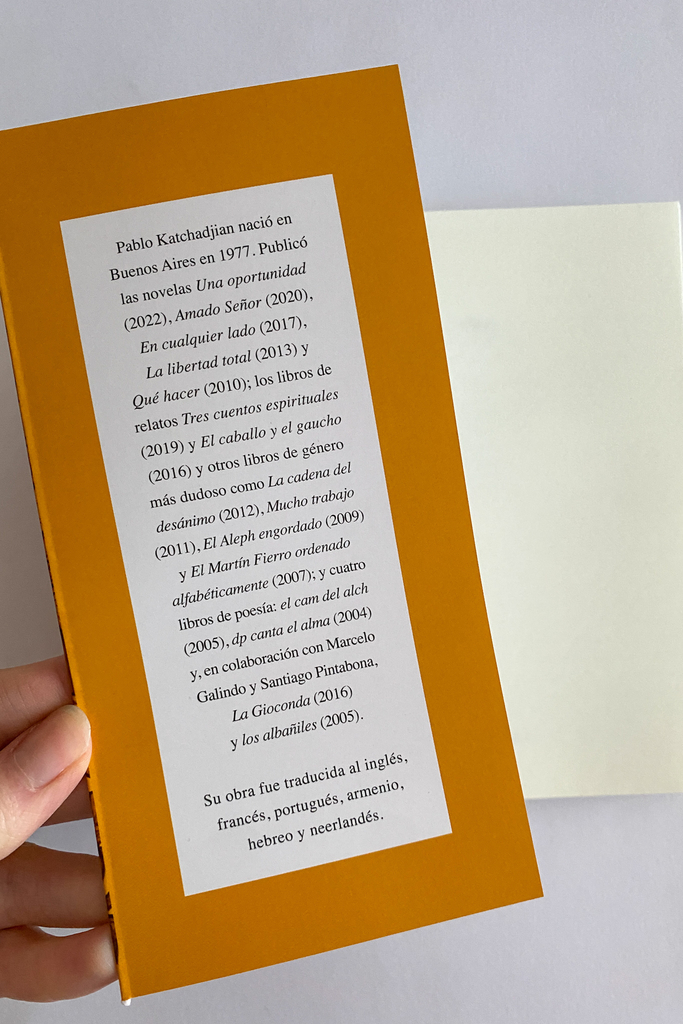 Pablo Katchadjian nació en
Buenos Aires en 1977. Publicó
las novelas Una oportunidad
(2022), Amado Señor (2020),
En cualquier lado (2017),
La libertad total (2013) y
Qué hacer (2010); los libros de
relatos Tres cuentos espirituales
(2019) y El caballo y el gaucho
(2016) y otros libros de género
más dudoso como La cadena del
desánimo (2012), Mucho trabajo
(2011), El Aleph engordado (2009)
y El Martín Fierro ordenado
alfabéticamente (2007); y cuatro
libros de poesía: el cam del alch
(2005), dp canta el alma (2004)
y, en colaboración con Marcelo
Galindo y Santiago Pintabona,
La Gioconda (2016)
y los albañiles (2005).
Su obra fue traducida al inglés,
francés, portugués, armenio,
hebreo y neerlandés.